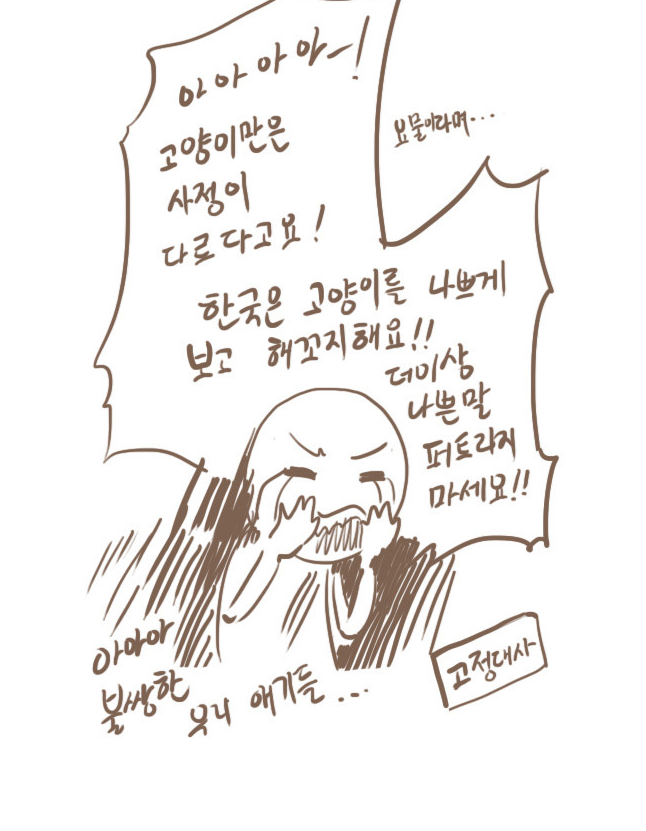 아아아아~!
고양이만은
사정이
다르다고요!
요물이라며...
한국은 고양이를 나쁘게
보고 해꼬지해요!!
더이상
나쁜말
퍼트리지
마세요!!
아아아
불쌍한
우리 애기들...
고정대사